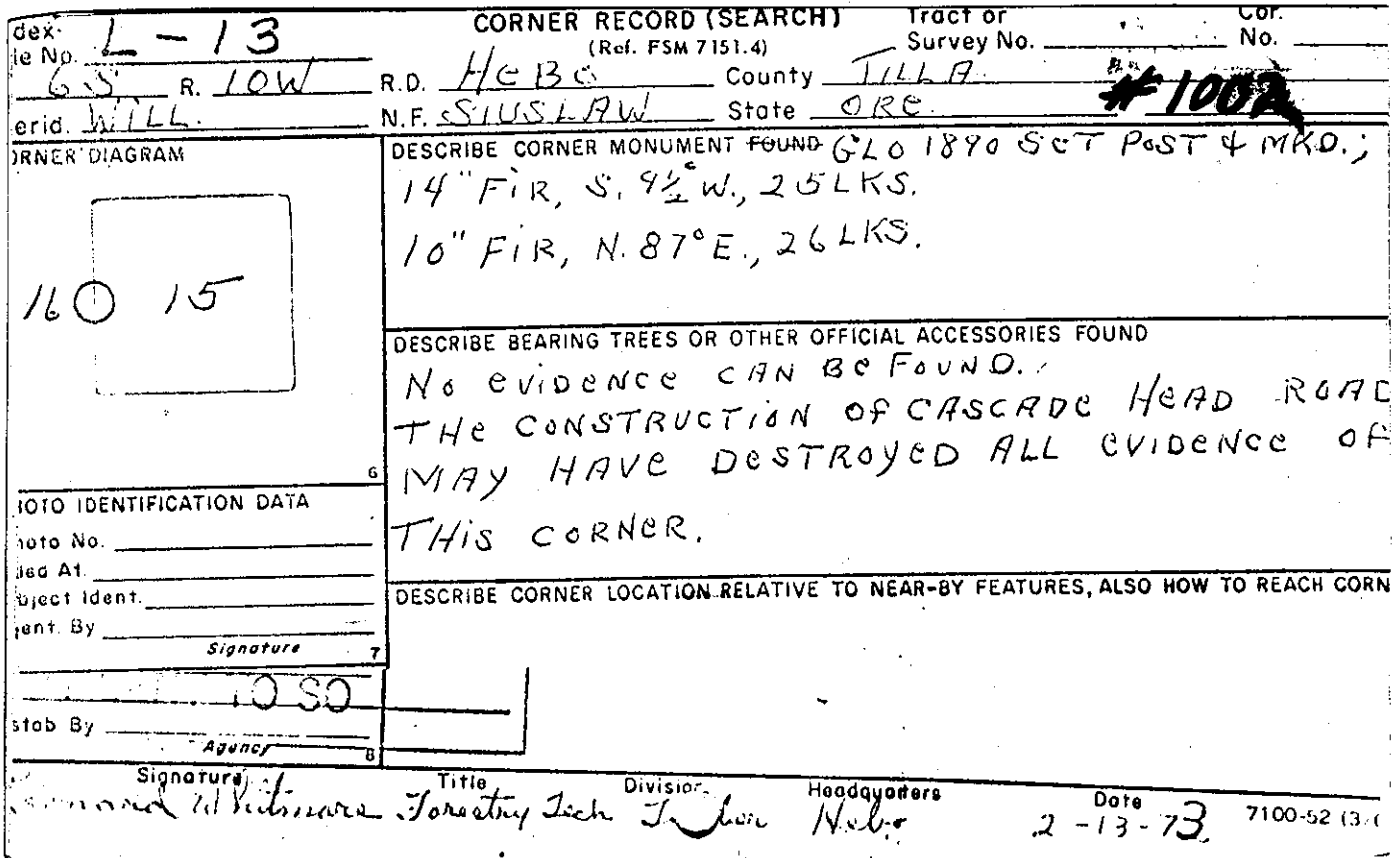 CORNER RECORD (SEARCH) Tract or Cor.
dex-
le No. L-13 (Ref. FSM 7151.4) Survey No. No.
6S R. 10W R.D. HEBO County TILLA
erid. WILL. N.F. SIUSLAW State ORE. #1002
ORNER DIAGRAM
16 15
6
DESCRIBE CORNER MONUMENT FOUND GLO 1890 SET POST & MKD.;
14" FIR, S. 9½° W., 25 LKS.
10" FIR, N. 87° E., 26 LKS.
DESCRIBE BEARING TREES OR OTHER OFFICIAL ACCESSORIES FOUND
NO EVIDENCE CAN BE FOUND.
THE CONSTRUCTION OF CASCADE HEAD ROAD
MAY HAVE DESTROYED ALL EVIDENCE OF
THIS CORNER.
IOTO IDENTIFICATION DATA
hoto No.
led At.
bject Ident.
ent. By
Signature 7
DESCRIBE CORNER LOCATION RELATIVE TO NEAR-BY FEATURES, ALSO HOW TO REACH CORN
TO SO
stab By
Agency 8
Signature Title Division Headquarters Date
Whitmore Forestry Tech Hebo 2-13-73 7100-52 (3/(